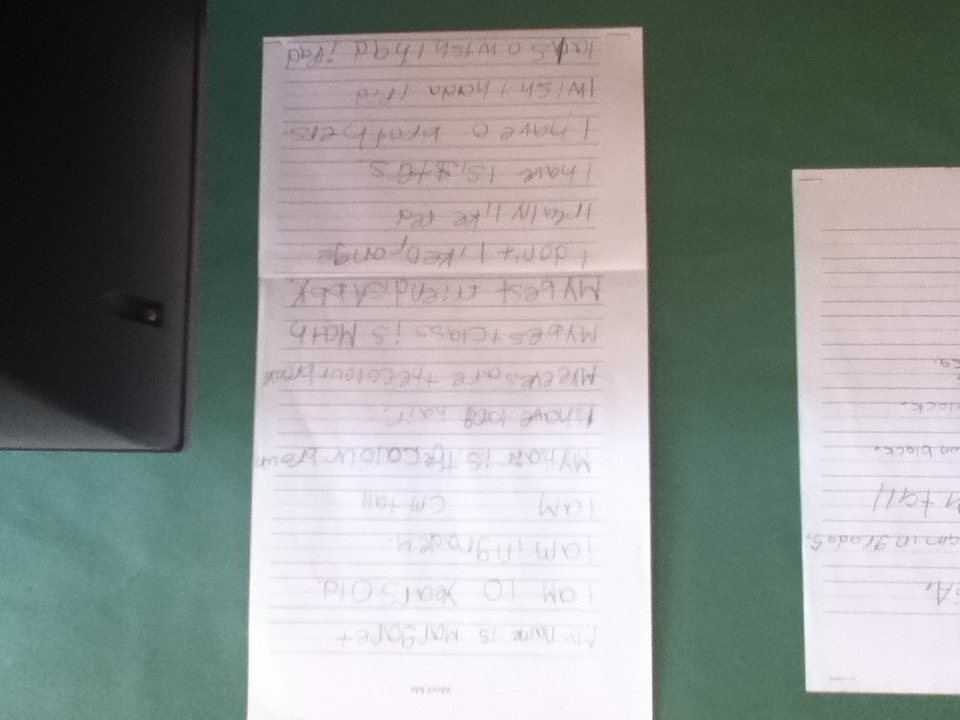 Meet Me
My name is Margaret
I am 10 years Old
I am in grade 4.
I am cm tall
My hair is the colour brown
I have long hair.
My eyes are the colour brown
My best class is Math
My best friend is Abby.
I don't like Orange
I really like red
I have 1 sister
I have 0 brothers.
I wish i had a iPod
I also wish i had iPad
GA.
am in grade 5.
M tall
wn black.
lack.